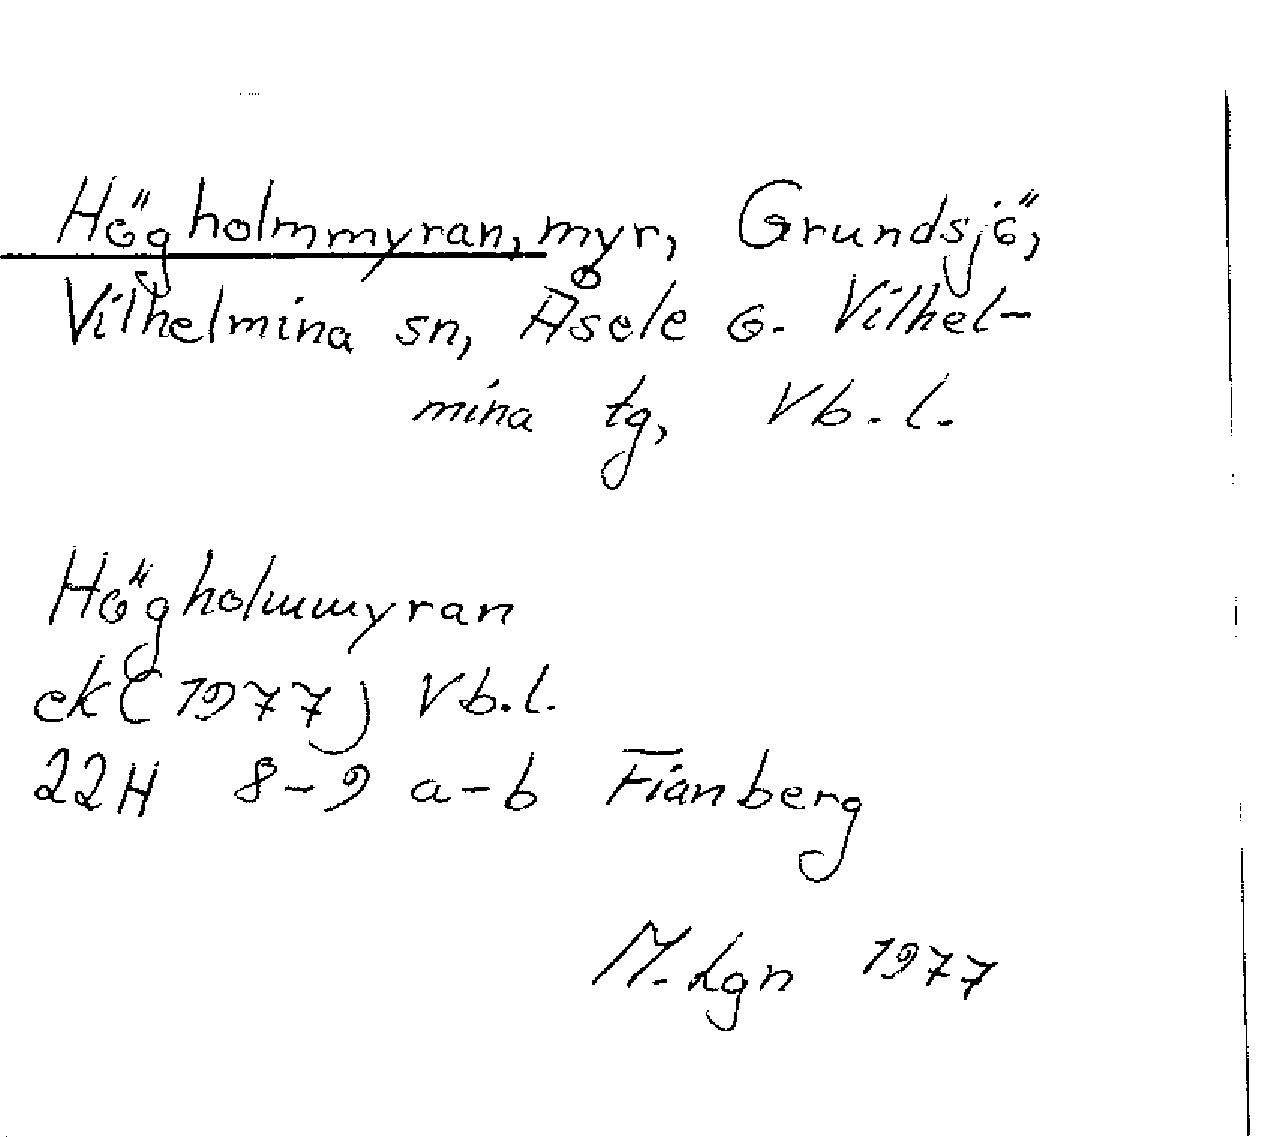 Högholmmyran, myr, Grundsjö,
Vilhelmina sn, Åsele o. Vilhel-
mina tg, Vb.l.
Högholmmyran
ek (1977) Vb.l.
22H 8-9 a-b Fianberg
M. Lgn 1977